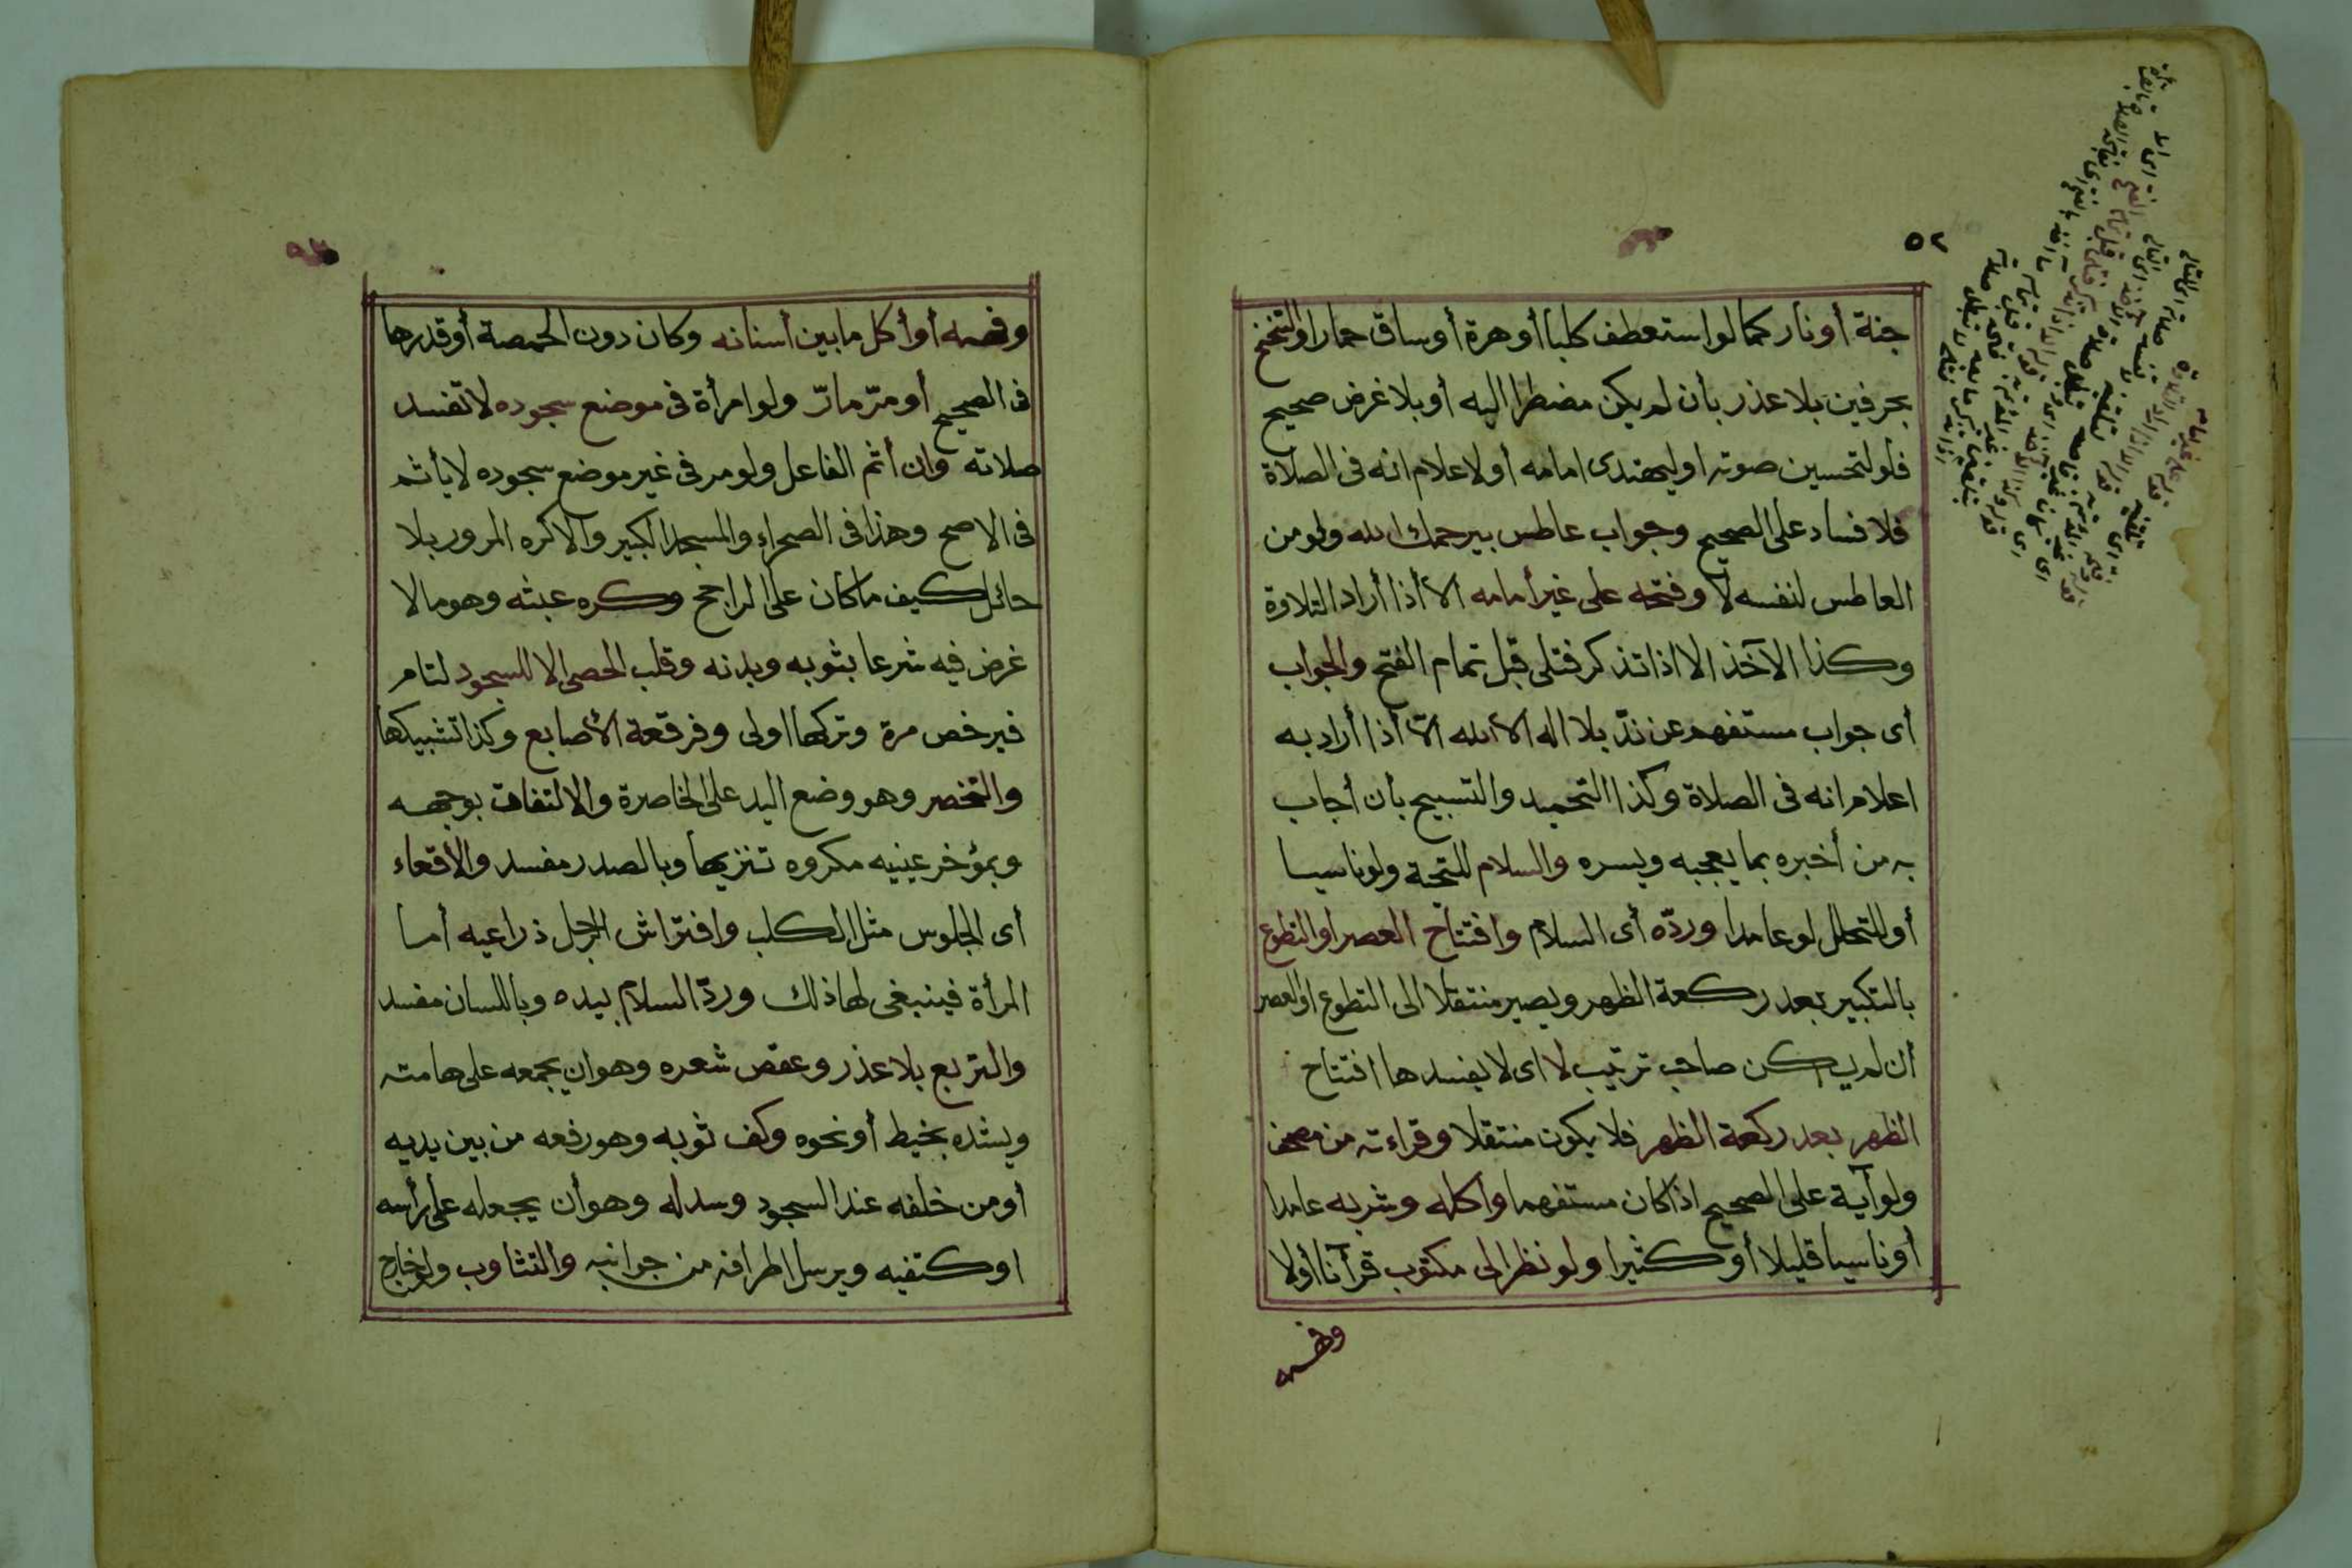 ٥٢
جنة أو نار كما لو استعطف كلبا أو هرة أو ساق حمارا والتنحنح
بحرفين بلا عذر بأن لم يكن مضطرا اليه أو بلا غرض صحيح
فلو لتحسين صوته او ليهتدى امامه أو لاعلام انه فى الصلاة
فلا فساد على الصحيح وجواب عاطس بيرحمك الله ولو من
العاطس لنفسه لا وفتحه على غير أمامه الا أذا أراد التلاوة
وكذا الآخذ الا اذا تذكر فتلى قبل تمام الفتح والجواب
أى جواب مستفهم عن ندّ بلا اله الا الله الا أذا أراد به
اعلام انه فى الصلاة وكذا التحميد والتسبيح بأن أجاب
به من أخبره بما يعجبه ويسره والسلام للتحية ولو ناسيا
أو للتحلل لو عامدا وردّه أى السلام وافتتاح العصر او التطوع
بالتكبير بعد ركعة الظهر ويصير منتقلا الى التطوع او العصر
أن لم يكن صاحب ترتيب لا اى لا يفسدها افتتاح
الظهر بعد ركعة الظهر فلا يكون منتقلا وقراءته من مصحف
ولو آية على الصحيح اذا كان مستفهما واكله وشربه عامدا
أو ناسيا قليلا أو كثيرا ولو نظر الى مكتوب قرآنا أولا
وفهمه
وفهمه أو أكل ما بين أسنانه وكان دون الحمصة أو قدرها
فى الصحيح أو مرّ مارّ ولو امرأة فى موضع سجوده لا تفسد
صلاته وان أثم الفاعل ولو مر فى غير موضع سجوده لا يأثم
فى الاصح وهذا فى الصحراء والمسجد الكبير والا كره المرور بلا
حائل كيف ما كان على الراجح وكره عبثه وهو ما لا
غرض فيه شرعا بثوبه وبدنه وقلب الحصى الا للسجود لتام
فيرخص مرة وتركها اولى وفرقعة الأصابع وكذا تشبيكها
والتخصر وهو وضع اليد على الخاصرة والالتفات بوجهه
وبمؤخر عينيه مكروه تنزيها وبالصدر مفسد والأقعاء
أى الجلوس مثل الكلب وافتراش الرجل ذراعيه أما
المرأة فينبغى لها ذلك وردّ السلام بيده وباللسان مفسد
والتربع بلا عذر وعقص شعره وهو ان يجمعه على هامته
ويشده بخيط أو نحوه وكف ثوبه وهو رفعه من بين يديه
أو من خلفه عند السجود وسدله وهو أن يجعله على رأسه
او كتفيه ويرسل اطرافه من جوانبه والتثاوب واخراج